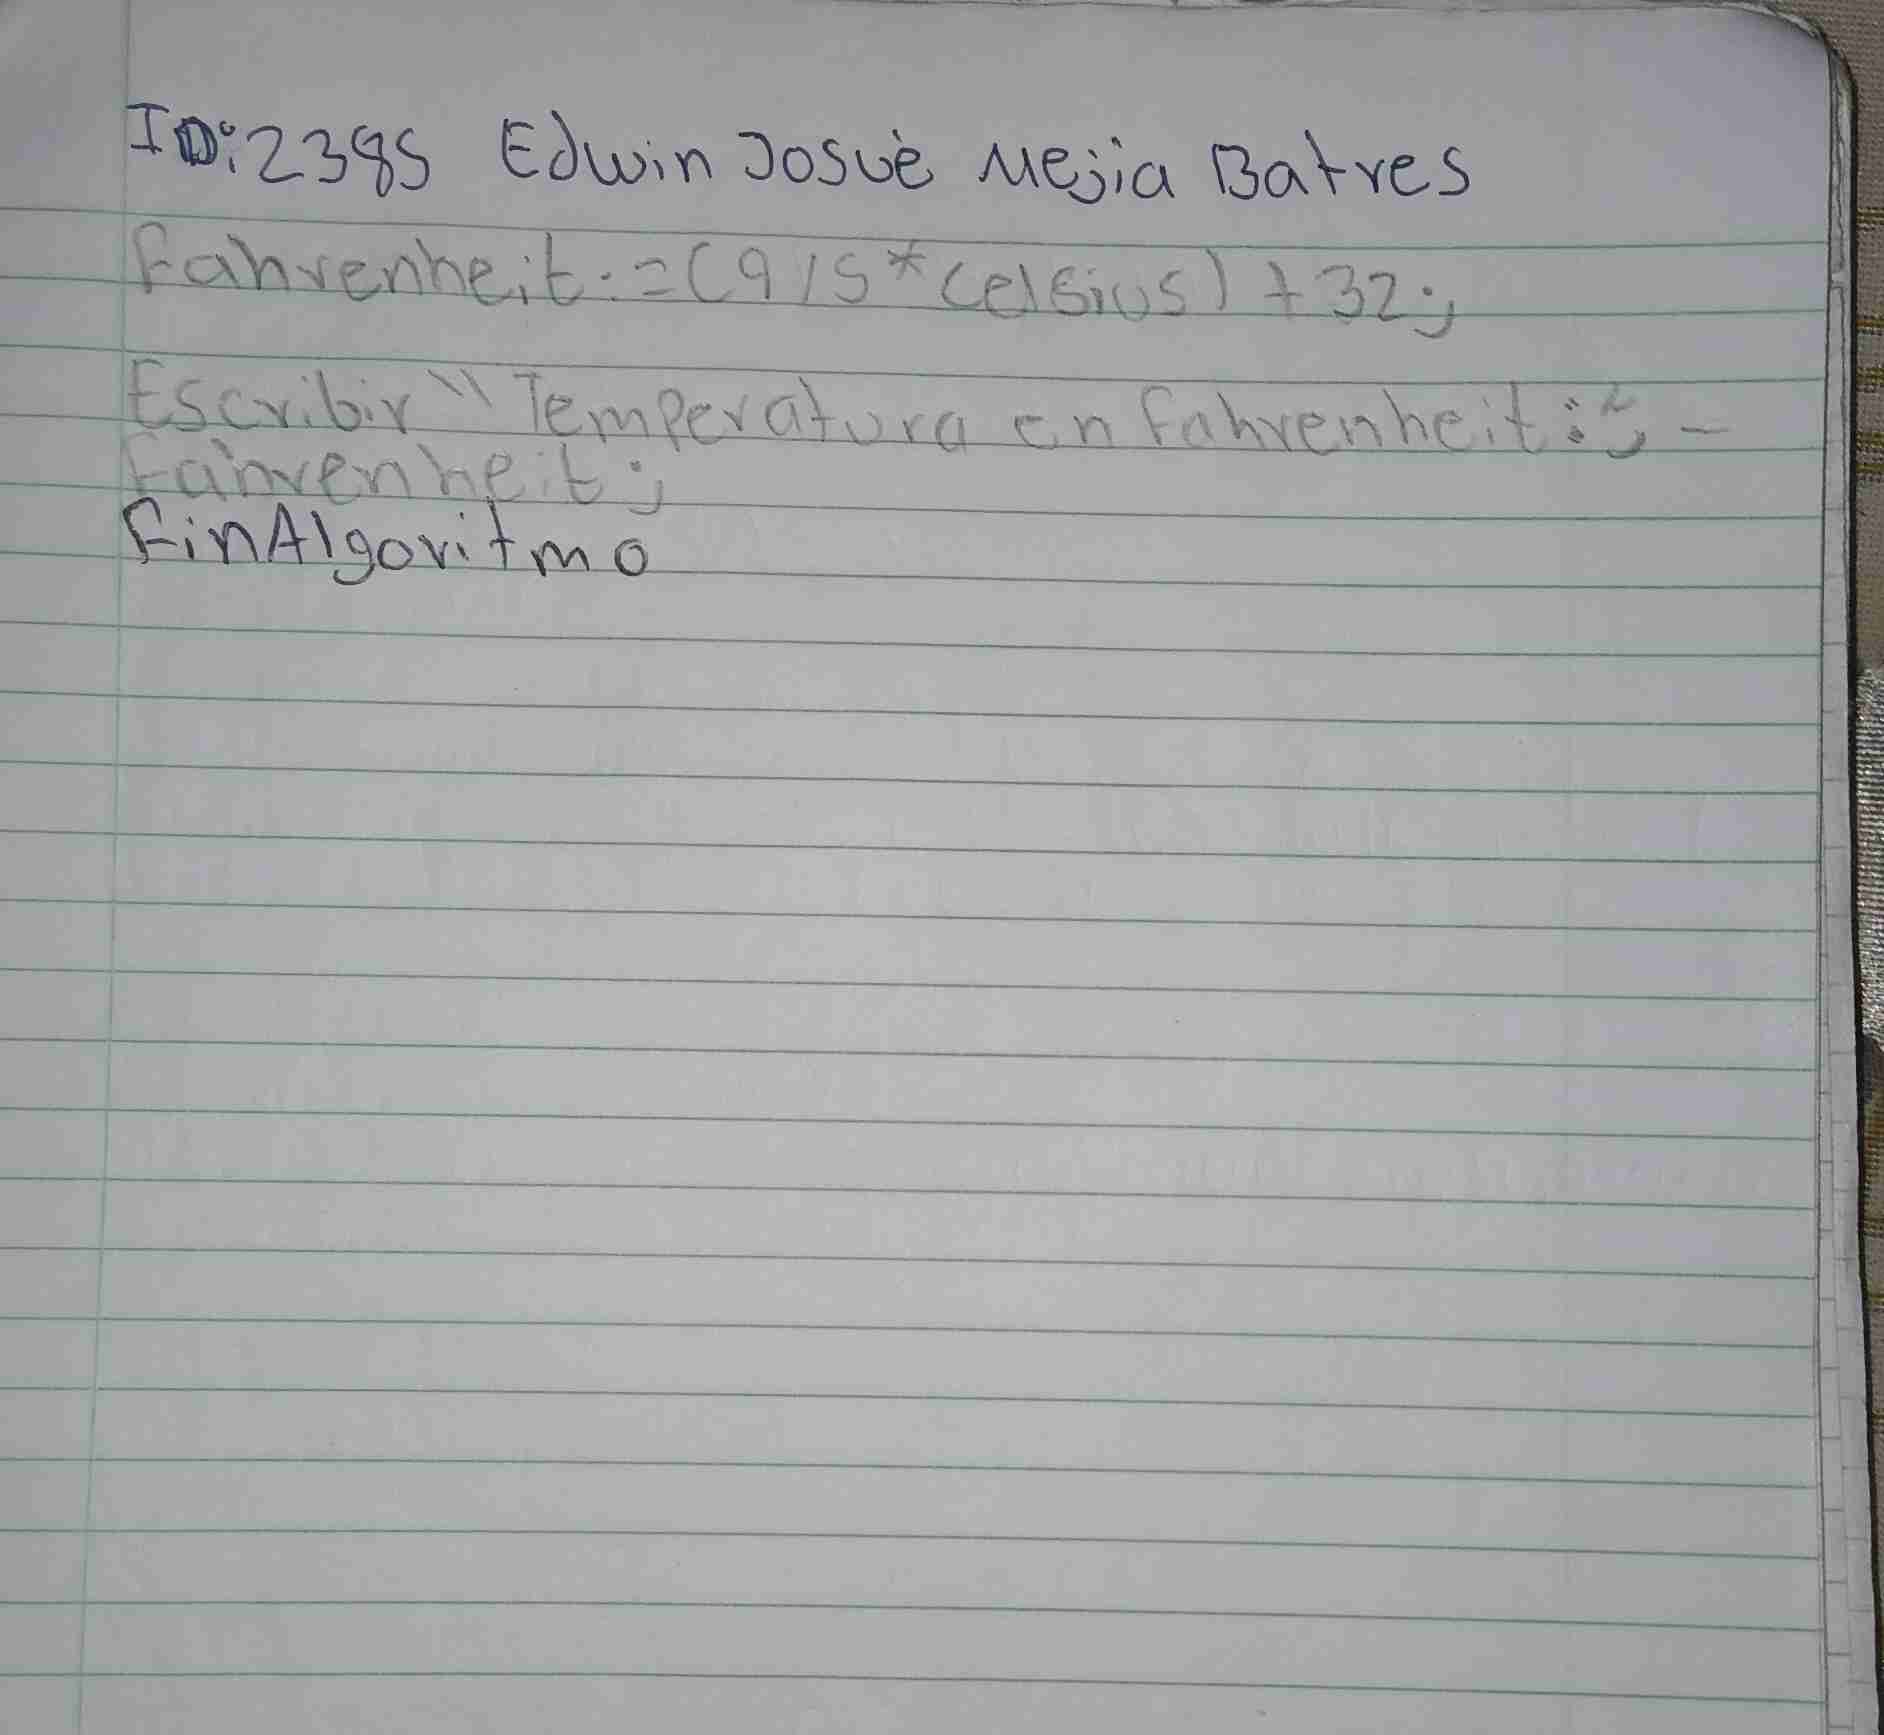 ID:2385 Edwin Josuè Mejia Batres
Fahrenheit:=(9/5*Celsius)+32;
Escribir "Temperatura en fahrenheit:", -
Fahrenheit;
FinAlgoritmo